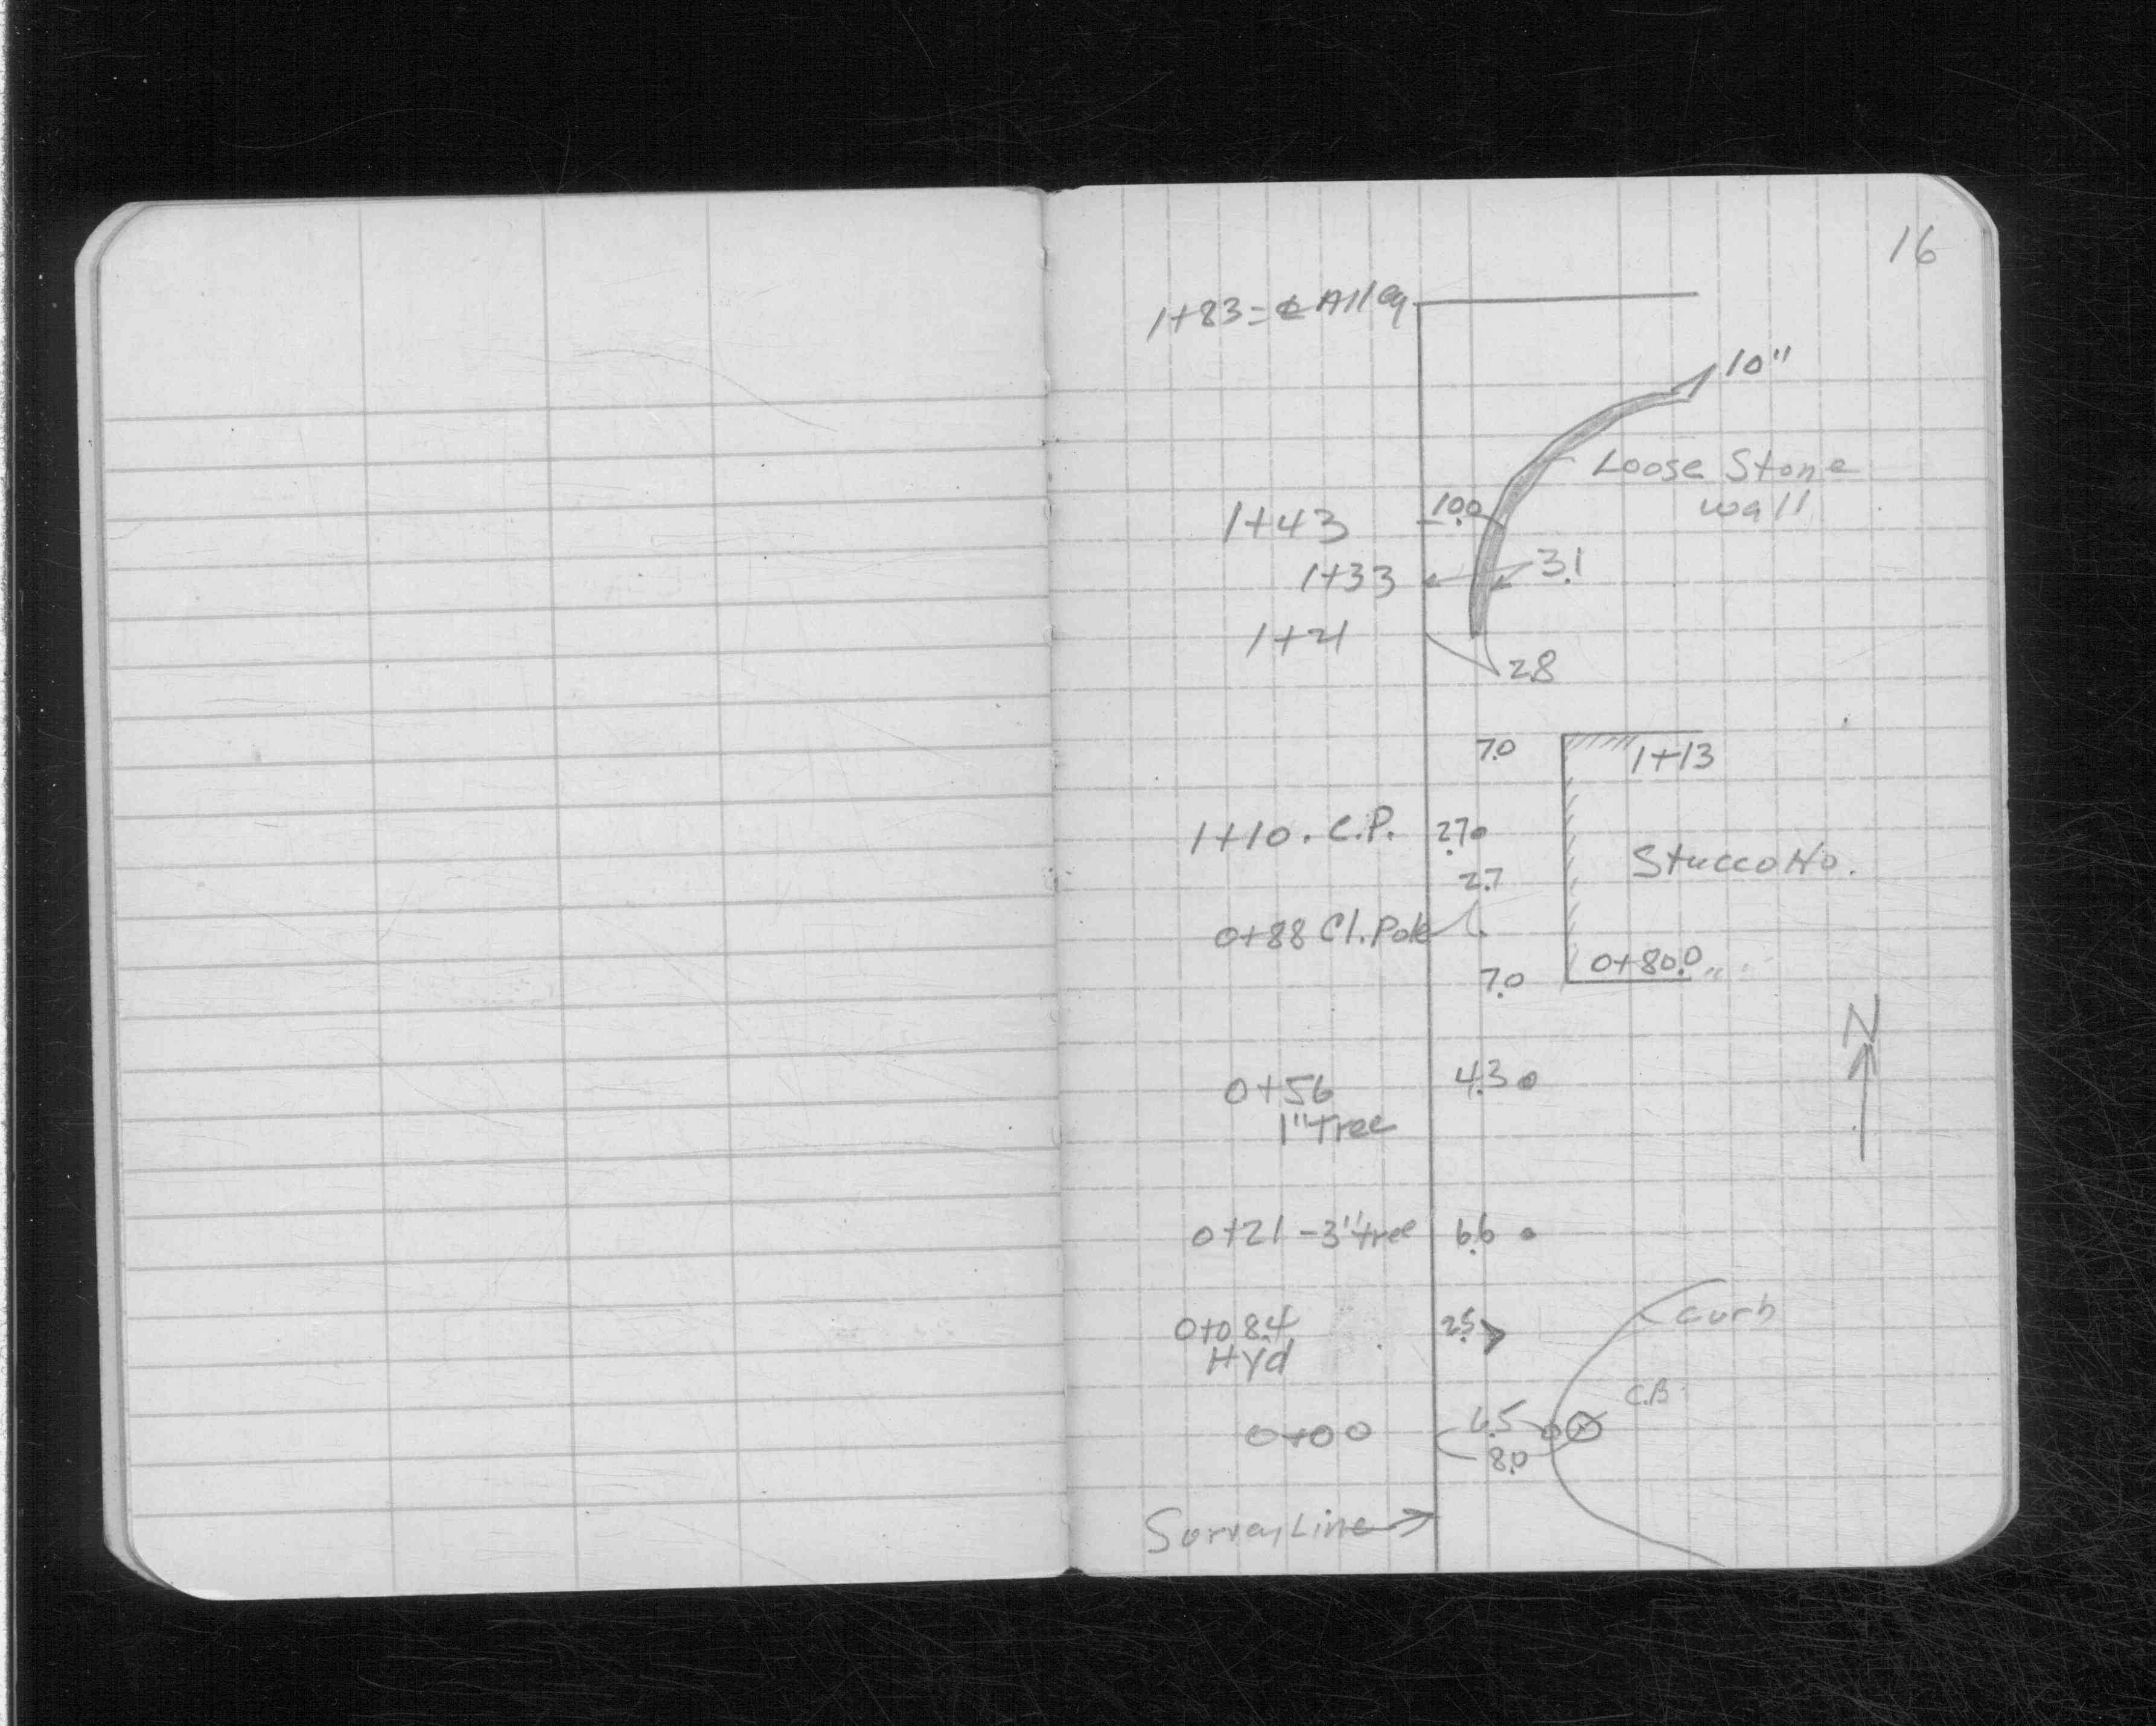 16
1+83=℄Alley
10"
Loose Stone
wall
1+43 10.0
1+33 3.1
1+21
2.8
7.0 1+13
1+10. C.P. 2.7
2.7
Stucco Ho.
0+88 Cl. Pole
7.0 0+80.0
N
0+56 4.3
1" tree
0+21 -3" tree 6.6
curb
0+08.4 2.5
Hyd
C.B.
0+00 6.5
8.0
Survey Line